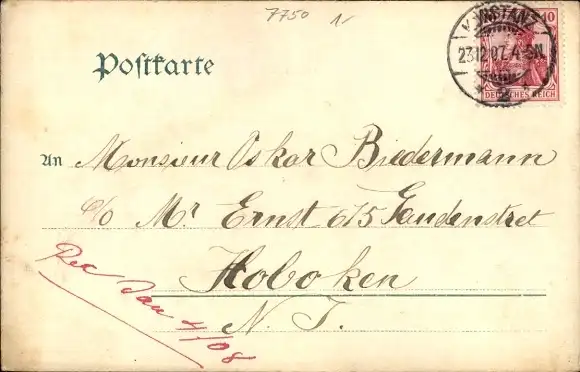 7750
10
KONSTANZ
23.12.07. 4-5N.
2
DEUTSCHES REICH
Postkarte
An Monsieur Oskar Biedermann
c/o Mr Ernst 615 Gardenstret
Hoboken
N. J.
Rec Jan 4/08